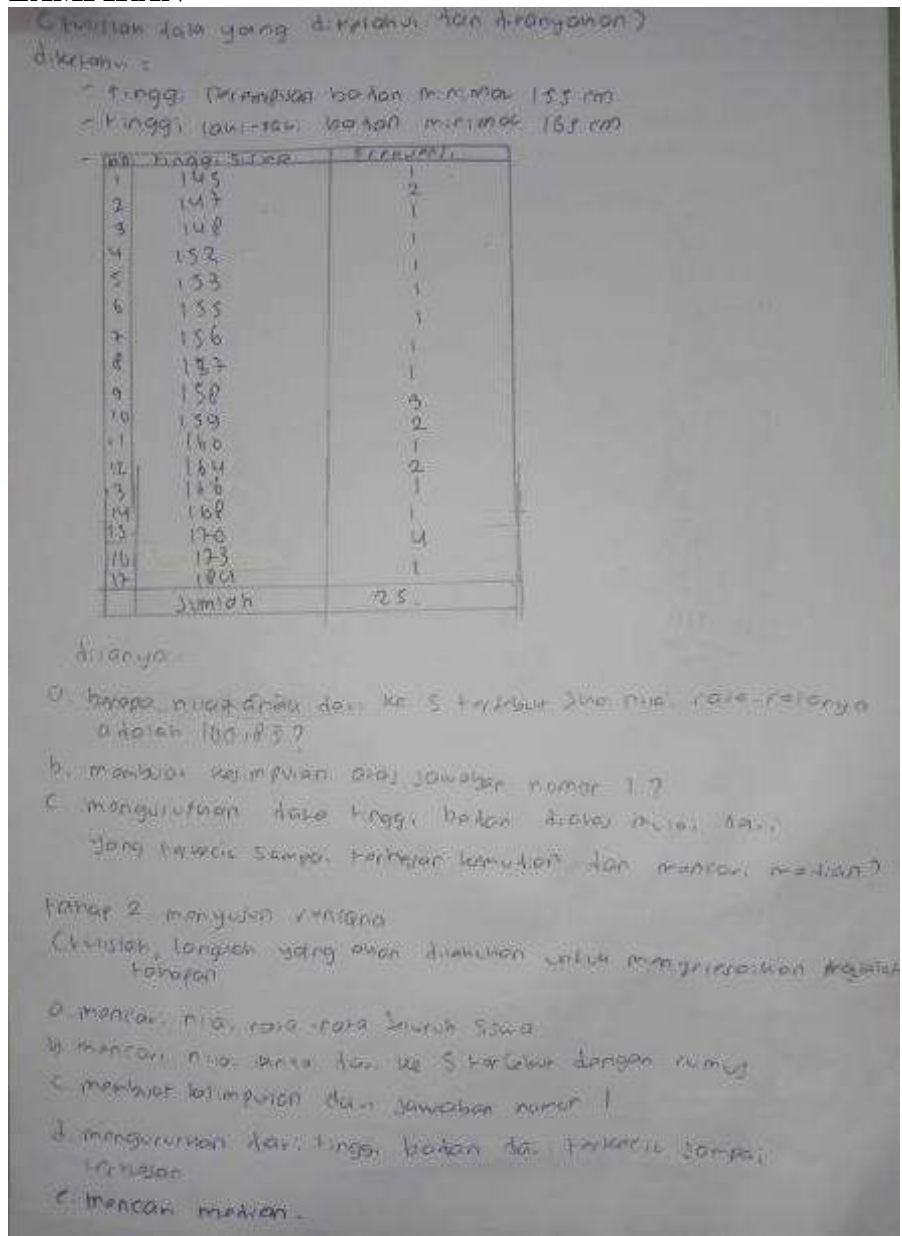 (tulislah data yang diketahui dan ditanyakan)
diketahui :
- tinggi perempuan badan minimal 155 cm
- tinggi laki-laki badan minimal 165 cm
- no tinggi siswa Frekuensi
1 145 1
2 147 2
3 148 1
4 152 1
5 153 1
6 155 1
7 156 1
8 157 1
9 158 1
10 159 3
11 160 2
12 164 1
13 166 2
14 168 1
15 170 1
16 173 4
17 180 1
Jumlah 25.
ditanya
a. berapa nilai dari ke 5 tersebut jika nilai rata-ratanya
adalah 160,83?
b. membuat kesimpulan atas jawaban nomor 1.?
c mengurutkan data tinggi badan diatas mulai dari
yang terkecil sampai terbesar kemudian dan mencari median?
tahap 2 menyusun rencana
(tulislah, langkah yang akan dilakukan untuk
tahapan
a. mencari nilai rata-rata seluruh siswa
b. mencari nilai dari ke 5 tersebut dengan rumus
c membuat kesimpulan dari jawaban nomor 1
d. mengurutkan dari tinggi badan dari terkecil sampai
terbesar
e. mencari median.